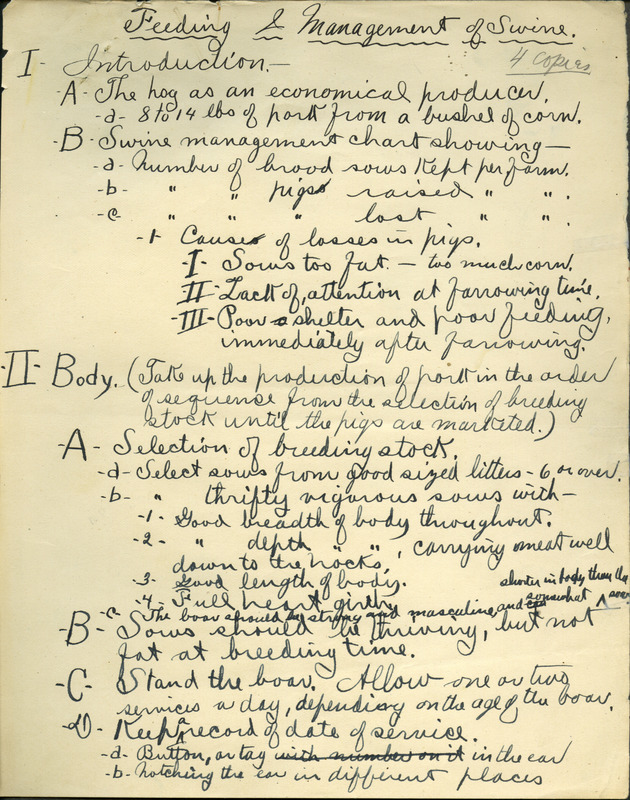 Feeding & Management of Swine.
4 copies
I- Introduction.-
-A- The hog as an economical producer.
-a- 8 to 14 lbs of pork from a bushel of corn.
-B- Swine management chart showing-
-a- Number of brood sows kept per farm.
-b- " " pigs raised " ".
-c- " " " lost " ".
-1- Cause of losses in pigs.
-I- Sows too fat. - too much corn.
-II- Lack of, attention at farrowing time.
-III- Poor shelter and poor feeding,
immediately after farrowing.
-II- Body. (Take up the production of pork in the order
of sequence from the selection of breeding
stock until the pigs are marketed.)
-A- Selection of breeding stock.
-a- Select sows from good sized litters - 6 or over.
-b- " thrifty vigorous sows with-
-1- Good breadth of body throughout.
-2- " depth " ", carrying meat well
down to the hocks.
-3- Good length of body.
-4- Full heart girth
shorter in body than the
-c- The boar should be strong and masculine, and somewhat ^ sow
-B- Sows should be thriving, but not
fat at breeding time.
-C- Stand the boar. Allow one or two
services a day, depending on the age of the boar.
-D- Keep ^ record of date of service.
-a- Button, or tag with number on it in the ear
-b- notching the ear in different places